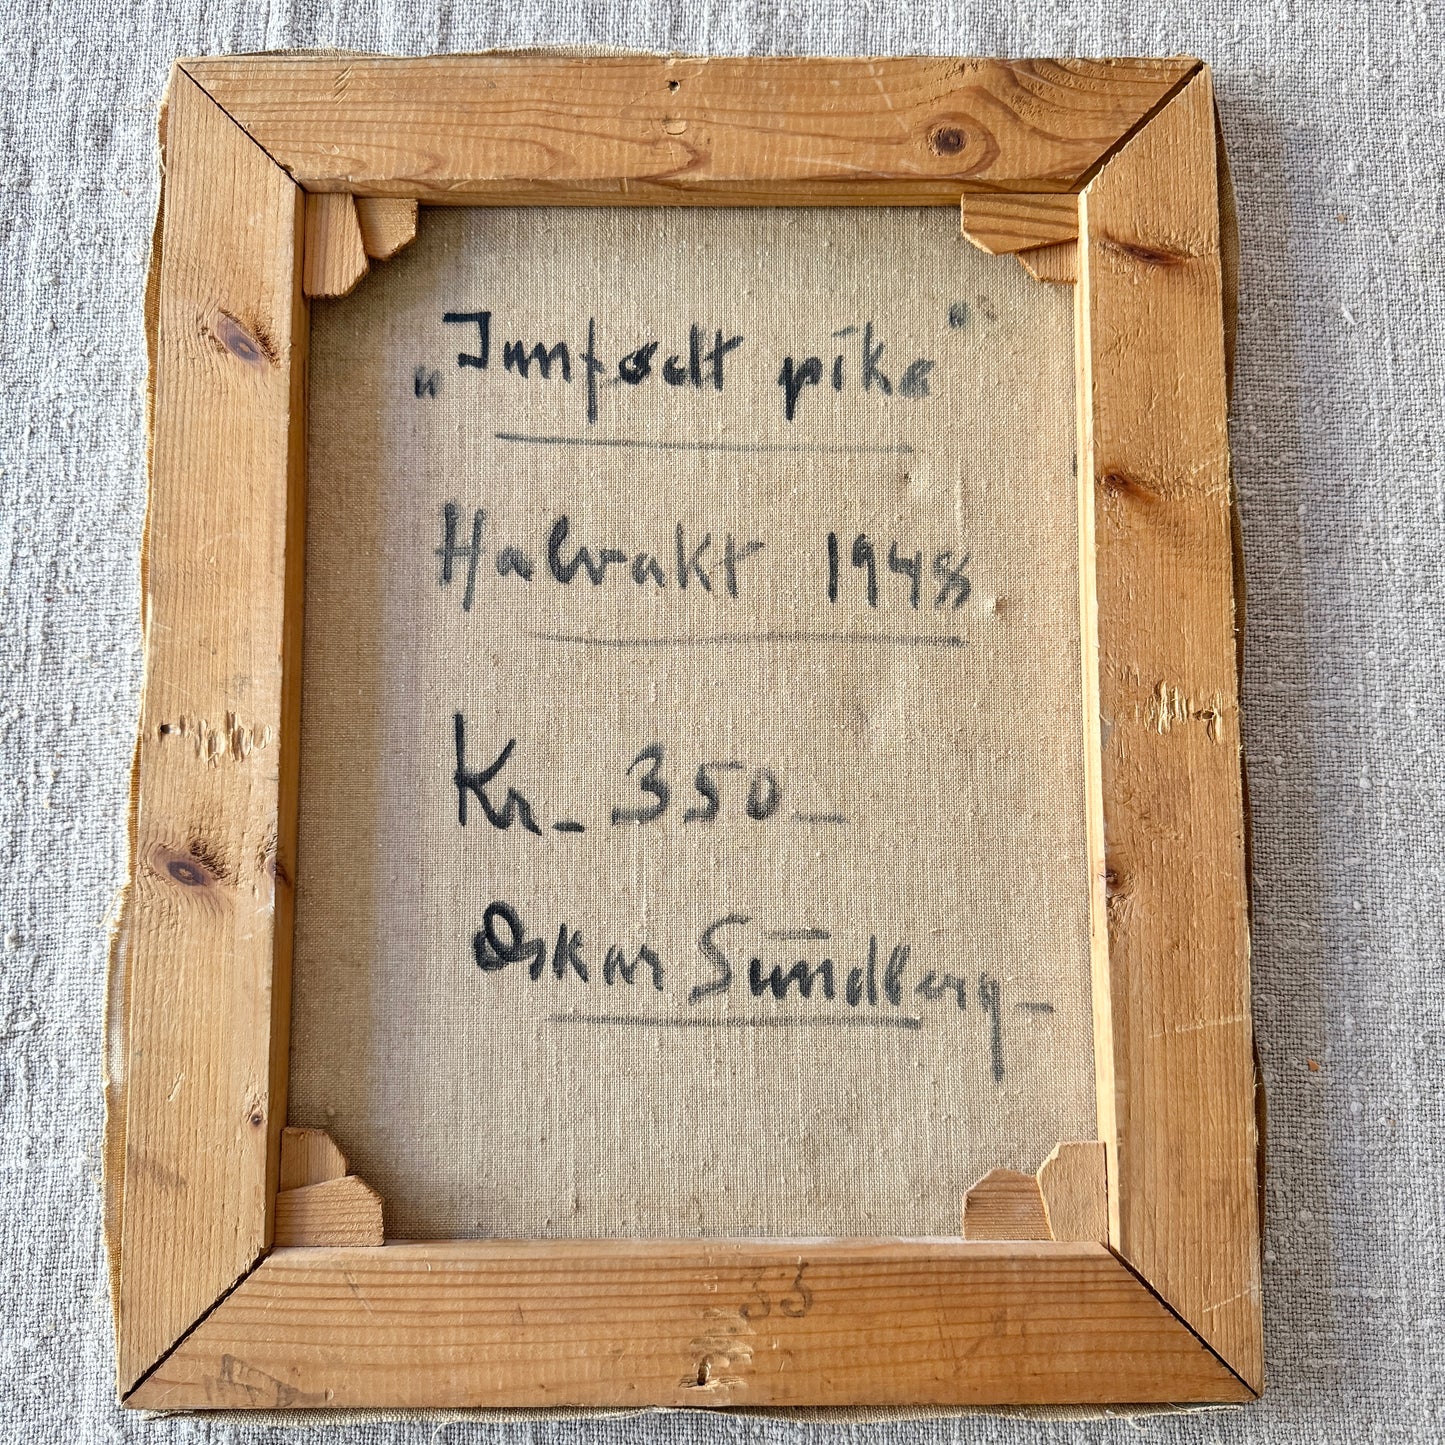 „Innfødt pike”
Halvakt 1948
Kr_ 350_
Oskar Sundberg_